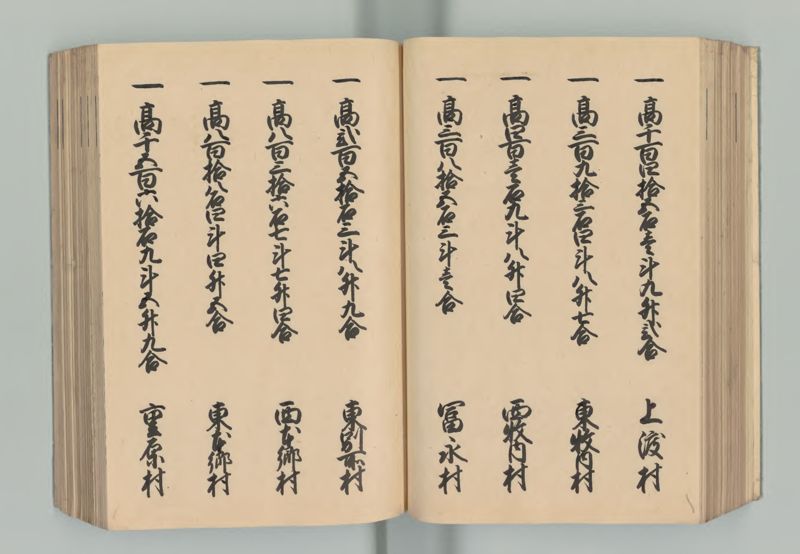 一 高千百四拾五石壱斗九升弐合 上渡村
一 高三百九拾三石四斗八升七合 東牧内村
一 高四百壱石九斗八升四合 西牧内村
一 高三百八拾五石三斗壱合 冨永村
一 高弐百五拾石三斗八升九合 東別所村
一 高八百三拾六石七斗七升四合 西本郷村
一 高八百拾八石四斗四升五合 東本郷村
一 高千五百六拾石九斗五升九合 重原村